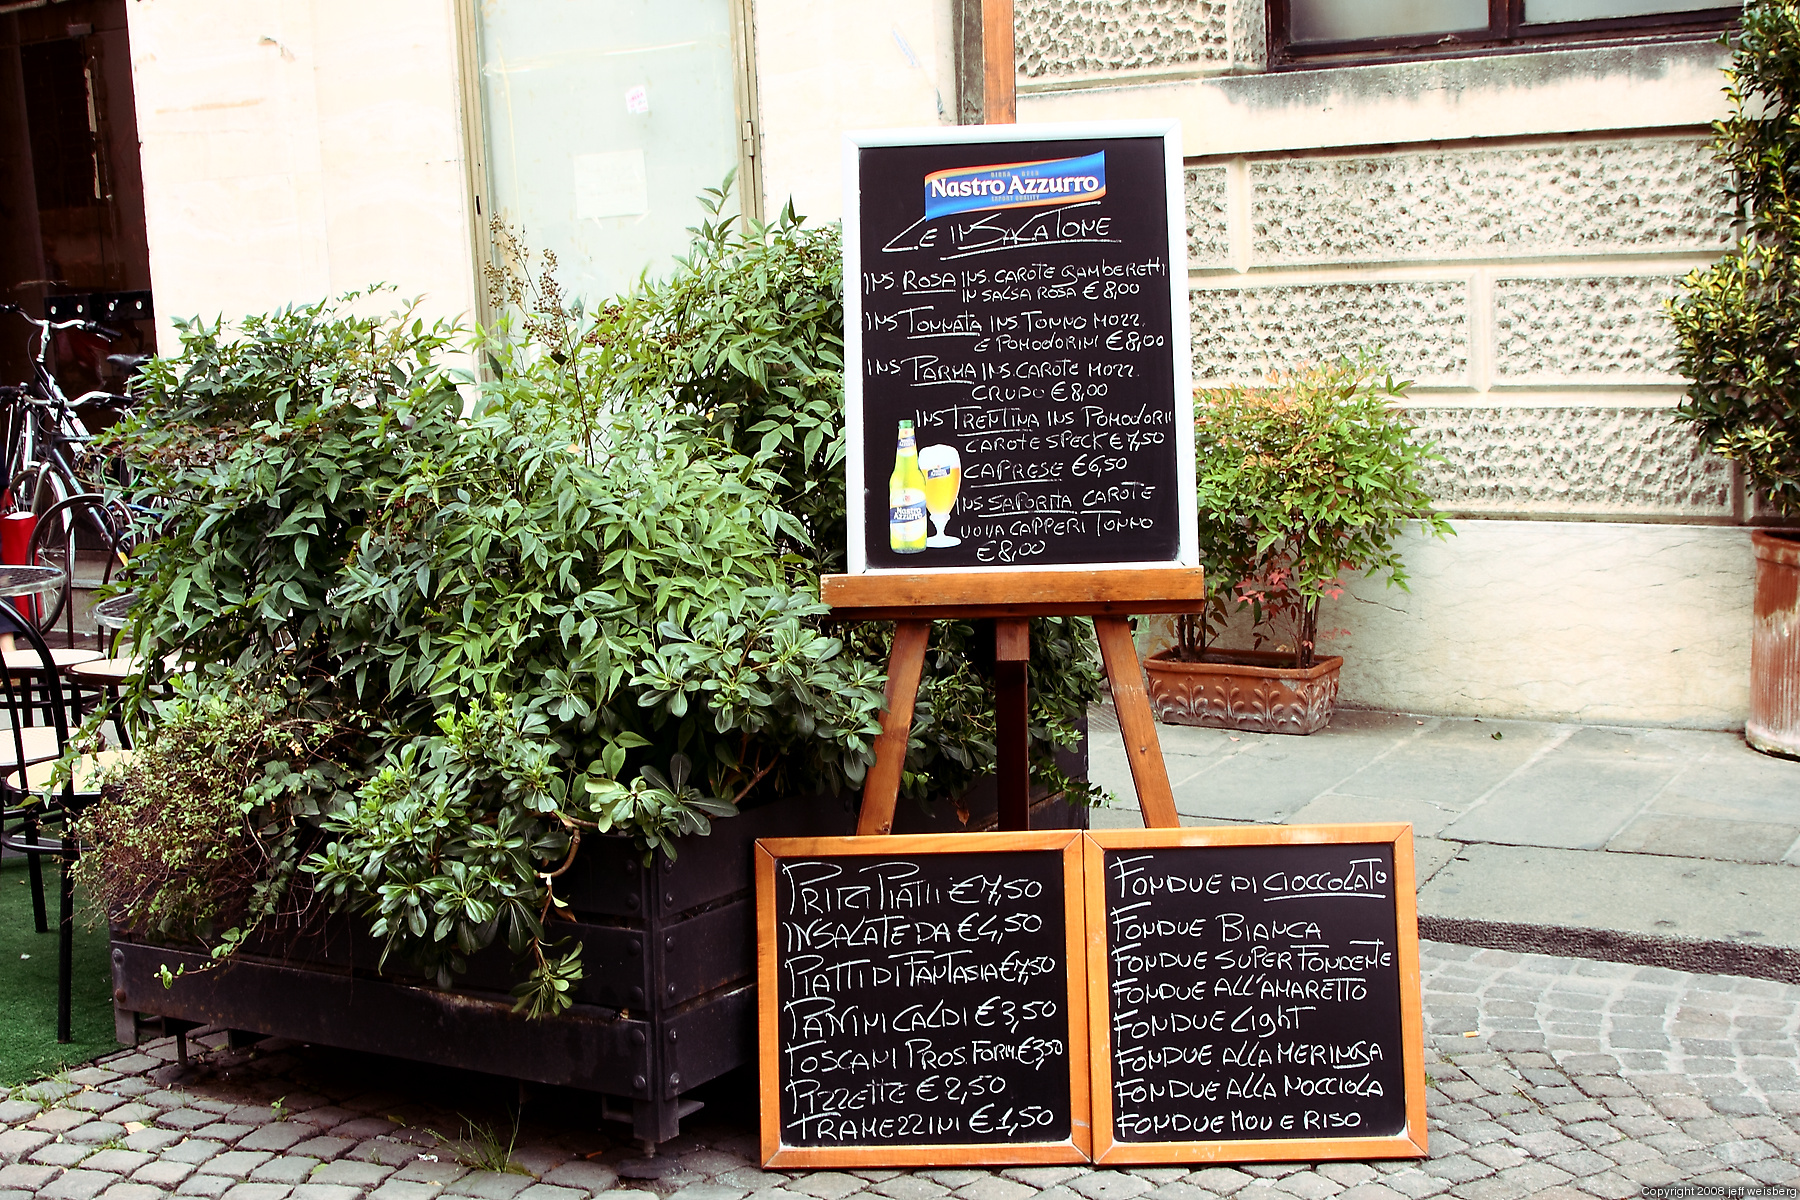 BIRRA BEER
Nastro Azzurro
EXPORT QUALITY
LE INSALATONE
INS. ROSA INS. CAROTE GAMBERETTI
IN SALSA ROSA € 8,00
INS TONNATA INS. TONNO MOZZ.
E POMODORINI € 8,00
INS PARMA INS. CAROTE MOZZ.
CRUDO € 8,00
INS TRENTINA INS POMODORI
CAROTE SPECK € 7,50
CAPRESE € 6,50
INS SAPORITA CAROTE
UOVA CAPPERI TONNO
€ 8,00
Nastro
Azzurro
PRIMI PIATTI € 7,50
INSALATE DA € 4,50
PIATTI DI FANTASIA € 7,50
PANINI CALDI € 3,50
TOSCANI PROS. FORM. € 3,50
PIZZETTE € 2,50
TRAMEZZINI € 1,50
FONDUE DI CIOCCOLATO
FONDUE BIANCA
FONDUE SUPER FONDENTE
FONDUE ALL'AMARETTO
FONDUE LIGHT
FONDUE ALLA MERINGA
FONDUE ALLA NOCCIOLA
FONDUE MOU E RISO
Copyright 2008 jeff weisberg